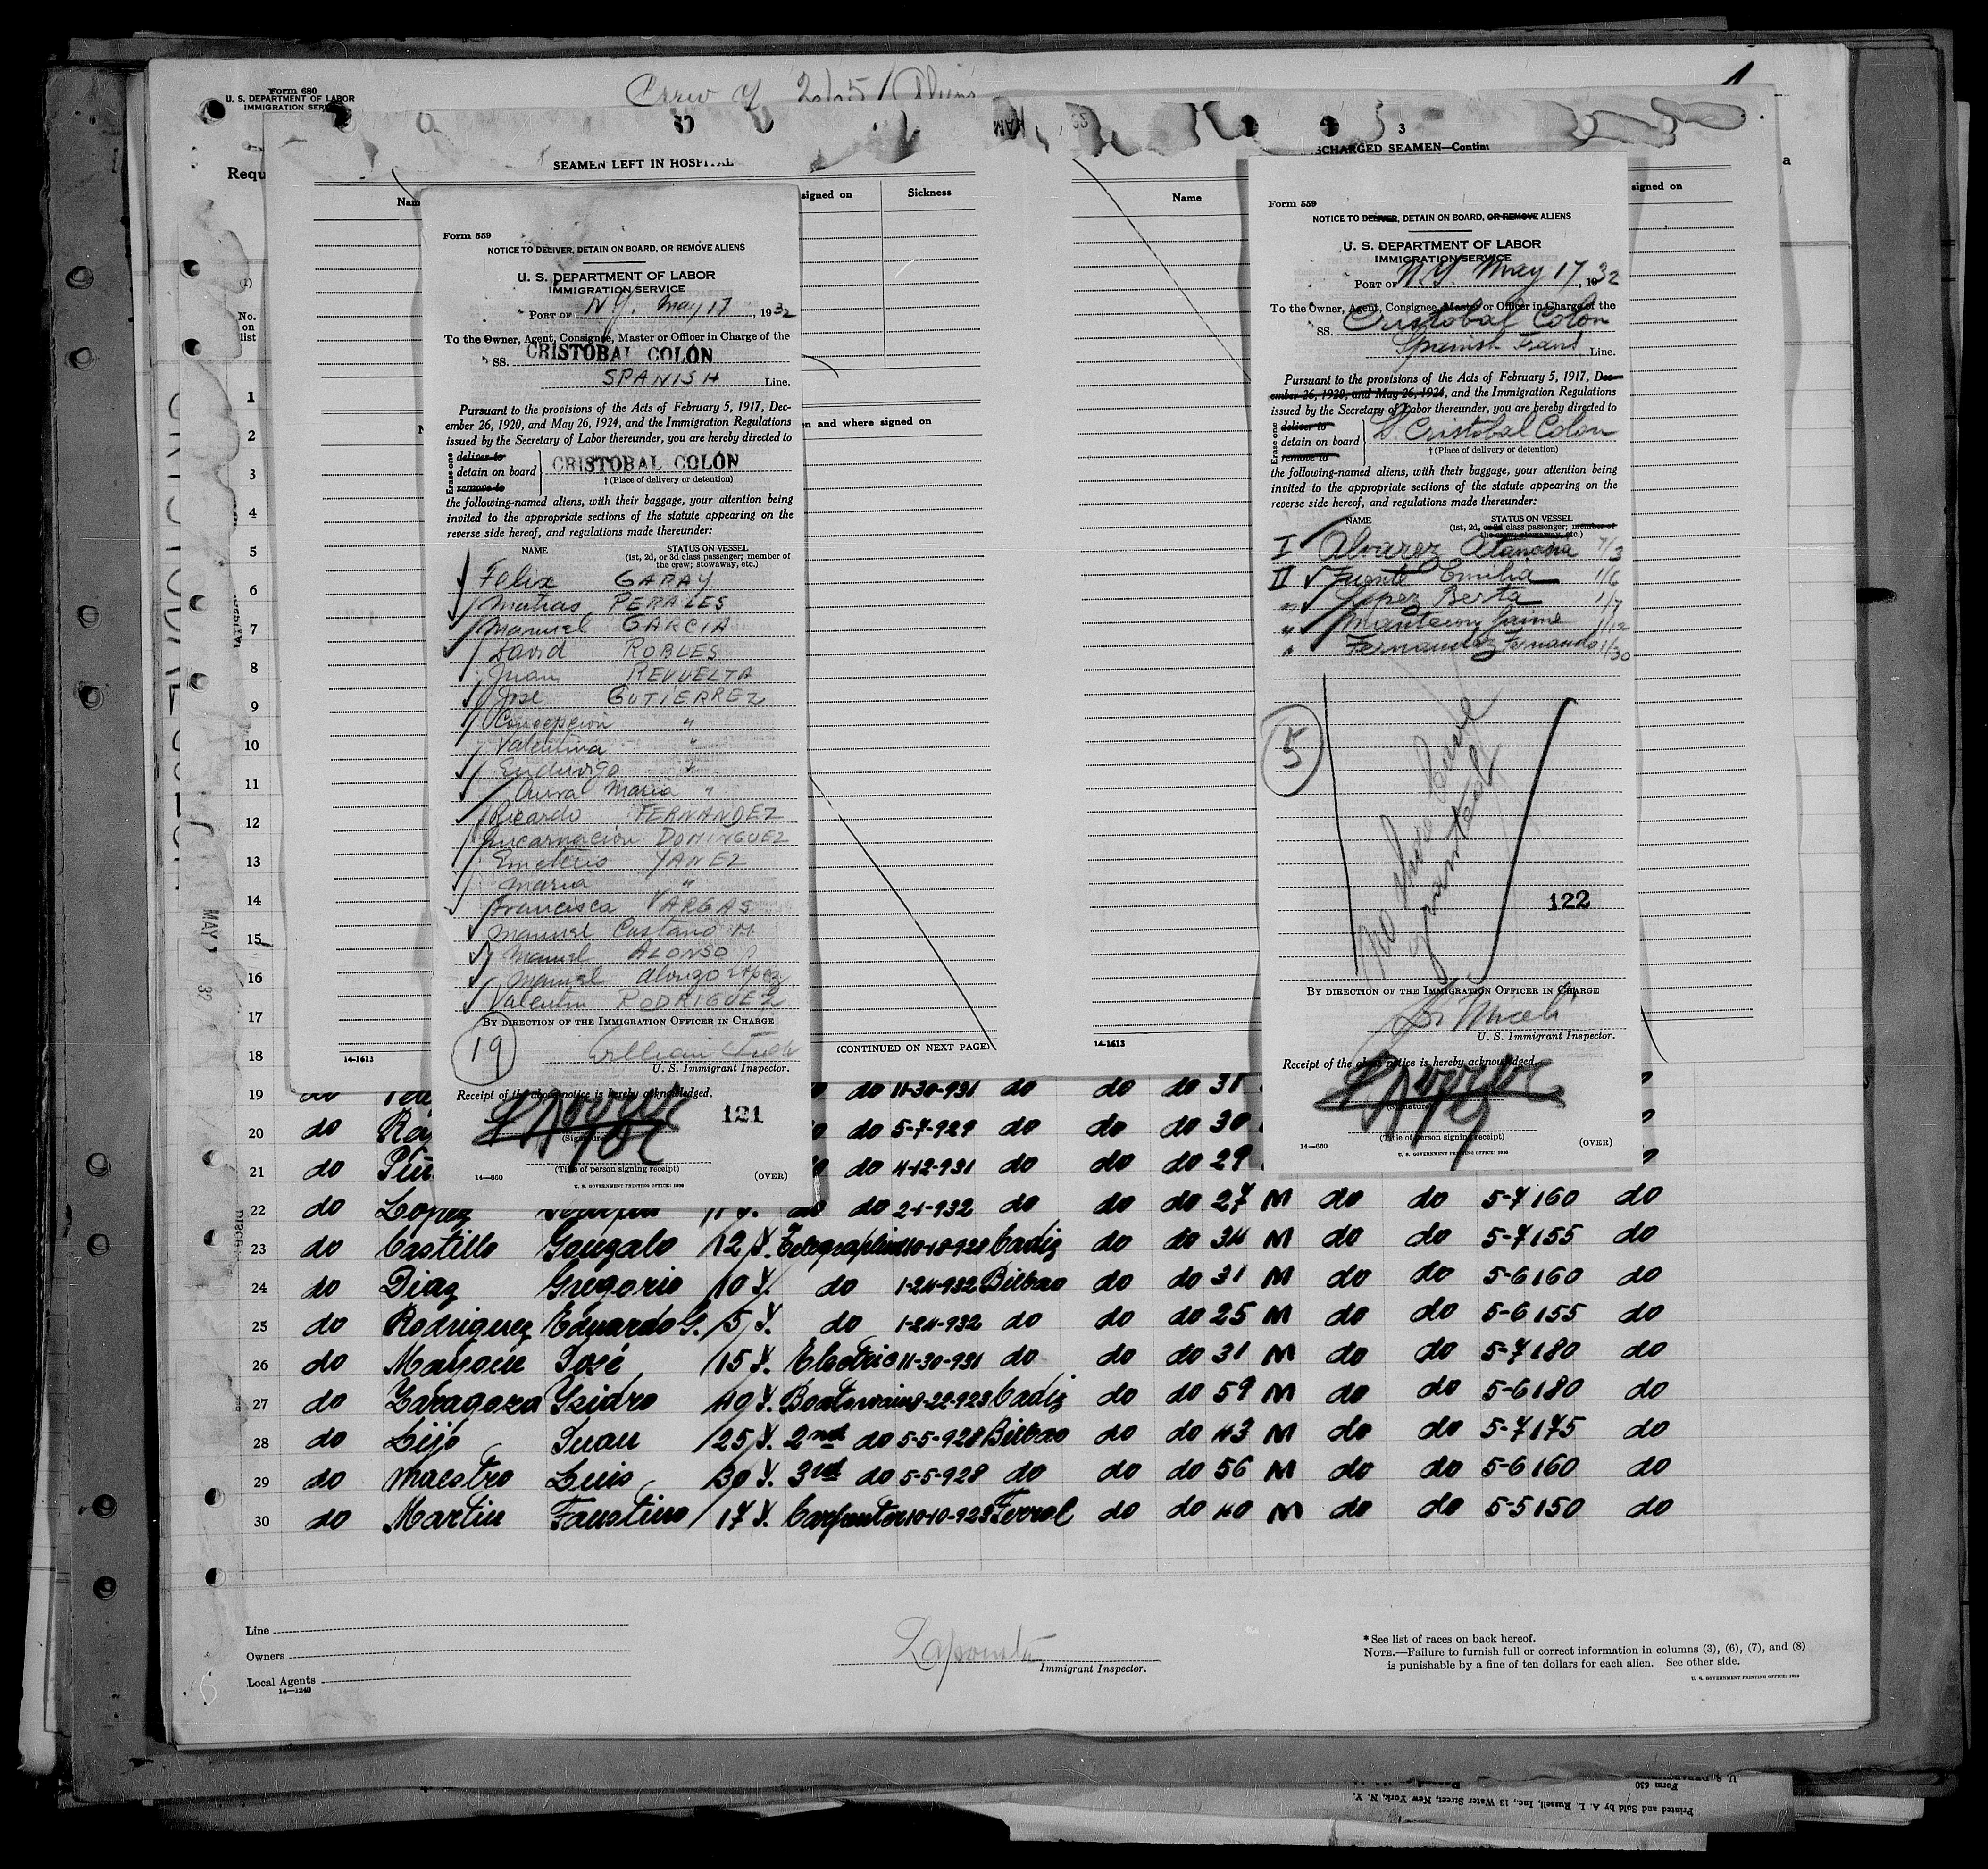 Form 680
U. S. DEPARTMENT OF LABOR
IMMIGRATION
Crew of
3
SEAMEN LEFT IN
SEAMEN—
Name
signed on
Sickness
Name
signed on
n and where signed on
No.
on
list
Form 559
NOTICE TO DELIVER, DETAIN ON BOARD, OR REMOVE ALIENS
U. S. DEPARTMENT OF LABOR
IMMIGRATION SERVICE
PORT OF N.Y. May 17, 1932
To the Owner, Agent, Consignee, Master or Officer in Charge of the
SS. CRISTOBAL COLÓN
SPANISH Line.
Pursuant to the provisions of the Acts of February 5, 1917, Dec-
ember 26, 1920, and May 26, 1924, and the Immigration Regulations
issued by the Secretary of Labor thereunder, you are hereby directed to
Erase one
deliver to
detain on board
remove to
CRISTOBAL COLÓN
†(Place of delivery or detention)
the following-named aliens, with their baggage, your attention being
invited to the appropriate sections of the statute appearing on the
reverse side hereof, and regulations made thereunder:
NAME STATUS ON VESSEL
(1st, 2d, or 3d class passenger; member of
the crew; stowaway, etc.)
Felix GARAY
Matias PERALES
Manuel GARCIA
David ROBLES
Juan REVUELTA
Jose GUTIERREZ
Concepcion "
Valentina "
"
Maria "
Ricardo FERNANDEZ
Encarnacion DOMINGUEZ
Emeterio YANEZ
Maria "
Francisca VARGAS
Manuel Castano M.
Manuel ALONSO
Manuel Alonso Lopez
Valentin RODRIGUEZ
BY DIRECTION OF THE IMMIGRATION OFFICER IN CHARGE
19
William
U. S. Immigrant Inspector.
Receipt of the above notice is hereby acknowledged.
121
(Signature)
(Title of person signing receipt)
14—660
(OVER)
U. S. GOVERNMENT PRINTING OFFICE: 1930
Form 559
NOTICE TO DELIVER, DETAIN ON BOARD, OR REMOVE ALIENS
U. S. DEPARTMENT OF LABOR
IMMIGRATION SERVICE
PORT OF N.Y. May 17, 1932
To the Owner, Agent, Consignee, Master or Officer in Charge of the
SS. Cristobal Colon
Spanish Trans Line.
Pursuant to the provisions of the Acts of February 5, 1917, Dec-
ember 26, 1920, and May 26, 1924, and the Immigration Regulations
issued by the Secretary of Labor thereunder, you are hereby directed to
Erase one
deliver to
detain on board
remove to
Cristobal Colon
†(Place of delivery or detention)
the following-named aliens, with their baggage, your attention being
invited to the appropriate sections of the statute appearing on the
reverse side hereof, and regulations made thereunder:
NAME STATUS ON VESSEL
(1st, 2d, or 3d class passenger; member of
the crew; stowaway, etc.)
I Alvarez Atanasia 7/3
II Fuente Emilia 1/6
" Lopez Berta 1/7
" Mantecon Jaime 1/12
" Fernandez Fernando 1/30
5
No shore leave
granted
122
BY DIRECTION OF THE IMMIGRATION OFFICER IN CHARGE
U. S. Immigrant Inspector.
Receipt of the above notice is hereby acknowledged.
(Signature)
(Title of person signing receipt)
14—660
(OVER)
U. S. GOVERNMENT PRINTING OFFICE: 1930
14-1613
(CONTINUED ON NEXT PAGE)
14-1613
1
2
3
4
5
6
7
8
9
10
11
12
13
14
15
16
17
18
19 do do 11-30-931 do do do 31
20 do do 5-7-929 do do do 30
21 do do 4-12-931 do do do 29
22 do Lopez do 2-1-932 do do do 27 M do do 5-7 160 do
23 do Castillo Gonzalo 12 Y. Telegraphist 10-18-928 Cadiz do do 34 M do do 5-7 155 do
24 do Diaz Gregorio 10 Y. do 1-24-932 Bilbao do do 31 M do do 5-6 160 do
25 do Rodriguez Eduardo G. 5 Y. do 1-24-932 do do do 25 M do do 5-6 155 do
26 do José 15 Y. Electric 11-30-931 do do do 31 M do do 5-7 180 do
27 do Zaragoza Isidro 40 Y. Boatswain 9-22-923 Cadiz do do 59 M do do 5-6 180 do
28 do Lijó Juan 25 Y. 2nd do 5-5-928 Bilbao do do 43 M do do 5-7 175 do
29 do Maestro Luis 30 Y. 3rd do 5-5-928 do do do 56 M do do 5-6 160 do
30 do Martin Faustino 17 Y. Carpenter 10-10-923 Ferrol do do 40 M do do 5-5 150 do
Line
Owners
Local Agents
14—1240
Immigrant Inspector.
*See list of races on back hereof.
NOTE.—Failure to furnish full or correct information in columns (3), (6), (7), and (8)
is punishable by a fine of ten dollars for each alien. See other side.
U. S. GOVERNMENT PRINTING OFFICE: 1930
Form 630
Printed and Sold by A. L. Russell, Inc., 13 Water Street, New York, N. Y.